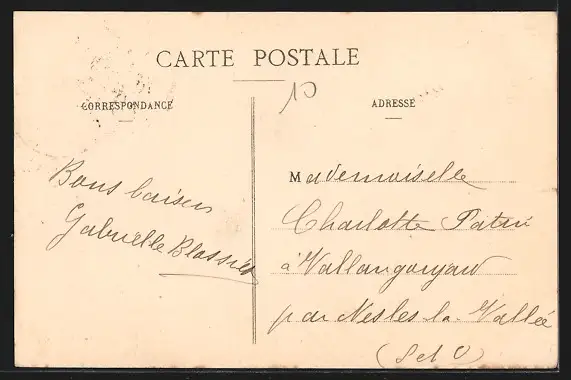 CARTE POSTALE
10
CORRESPONDANCE
ADRESSE
Bons baisers
Gabrielle
Mademoiselle
Charlotte Patin
à Vallangoujard
par Nesles-la-Vallée
(S et O)